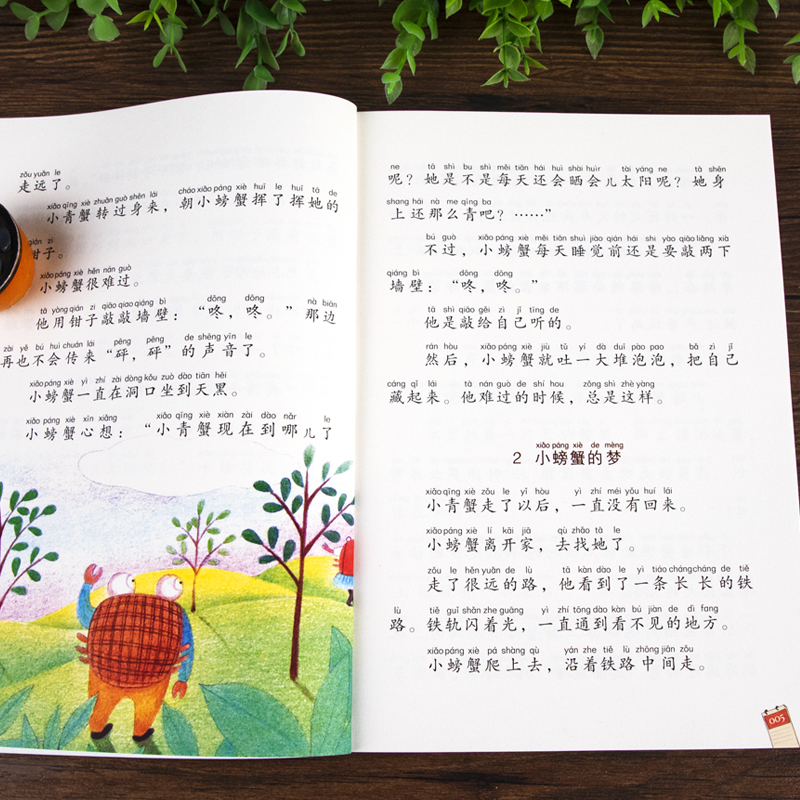 zǒu yuǎn le
走远了。
xiǎo qīng xiè zhuǎn guò shēn lái cháo xiǎo páng xiè huī le huī tā de
小青蟹转过身来，朝小螃蟹挥了挥她的
qián zi
钳子。
xiǎo páng xiè hěn nán guò
小螃蟹很难过。
tā yòng qián zi qiāo qiao qiáng bì dōng dōng nà biān
他用钳子敲敲墙壁：“咚，咚。”那边
zài yě bú huì chuán lái pēng pēng de shēng yīn le
再也不会传来“砰，砰”的声音了。
xiǎo páng xiè yì zhí zài dòng kǒu zuò dào tiān hēi
小螃蟹一直在洞口坐到天黑。
xiǎo páng xiè xīn xiǎng xiǎo qīng xiè xiàn zài dào nǎr le
小螃蟹心想：“小青蟹现在到哪儿了
ne tā shì bu shì měi tiān hái huì shài huìr tài yáng ne tā shēn
呢？她是不是每天还会晒会儿太阳呢？她身
shang hái nà me qīng ba
上还那么青吧？……”
bú guò xiǎo páng xiè měi tiān shuì jiào qián hái shi yào qiāo liǎng xià
不过，小螃蟹每天睡觉前还是要敲两下
qiáng bì dōng dōng
墙壁：“咚，咚。”
tā shì qiāo gěi zì jǐ tīng de
他是敲给自己听的。
rán hòu xiǎo páng xiè jiù tǔ yí dà duī pào pao bǎ zì jǐ
然后，小螃蟹就吐一大堆泡泡，把自己
cáng qǐ lái tā nán guò de shí hou zǒng shì zhè yàng
藏起来。他难过的时候，总是这样。
xiǎo páng xiè de mèng
2 小螃蟹的梦
xiǎo qīng xiè zǒu le yǐ hòu yì zhí méi yǒu huí lái
小青蟹走了以后，一直没有回来。
xiǎo páng xiè lí kāi jiā qù zhǎo tā le
小螃蟹离开家，去找她了。
zǒu le hěn yuǎn de lù tā kàn dào le yì tiáo cháng cháng de tiě
走了很远的路，他看到了一条长长的铁
lù tiě guǐ shǎn zhe guāng yì zhí tōng dào kàn bú jiàn de dì fang
路。铁轨闪着光，一直通到看不见的地方。
xiǎo páng xiè pá shàng qù yán zhe tiě lù zhōng jiān zǒu
小螃蟹爬上去，沿着铁路中间走。
005